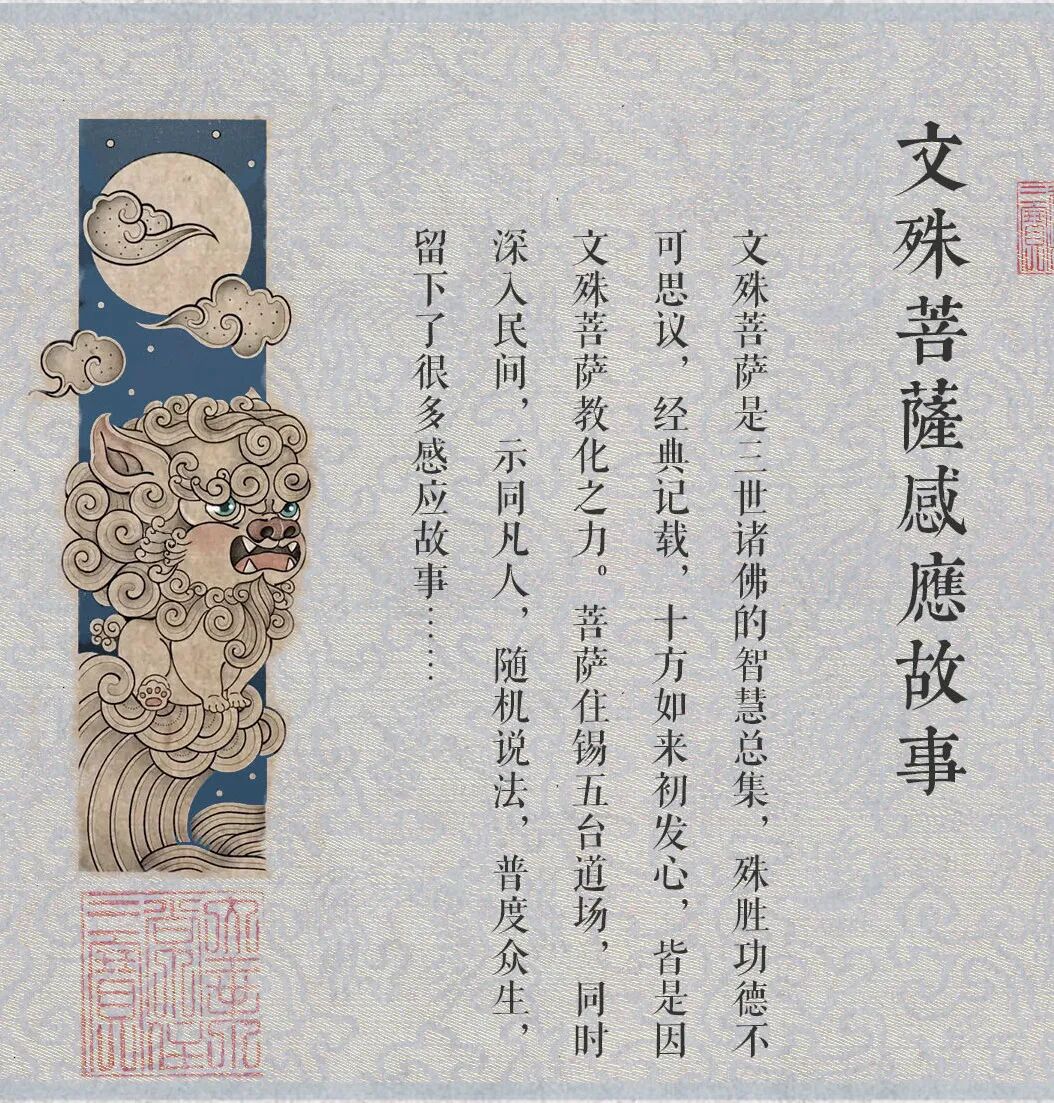 文殊菩薩感應故事
文殊菩萨是三世诸佛的智慧总集，殊胜功德不
可思议，经典记载，十方如来初发心，皆是因
文殊菩萨教化之力。菩萨住锡五台道场，同时
深入民间，示同凡人，随机说法，普度众生，
留下了很多感应故事……